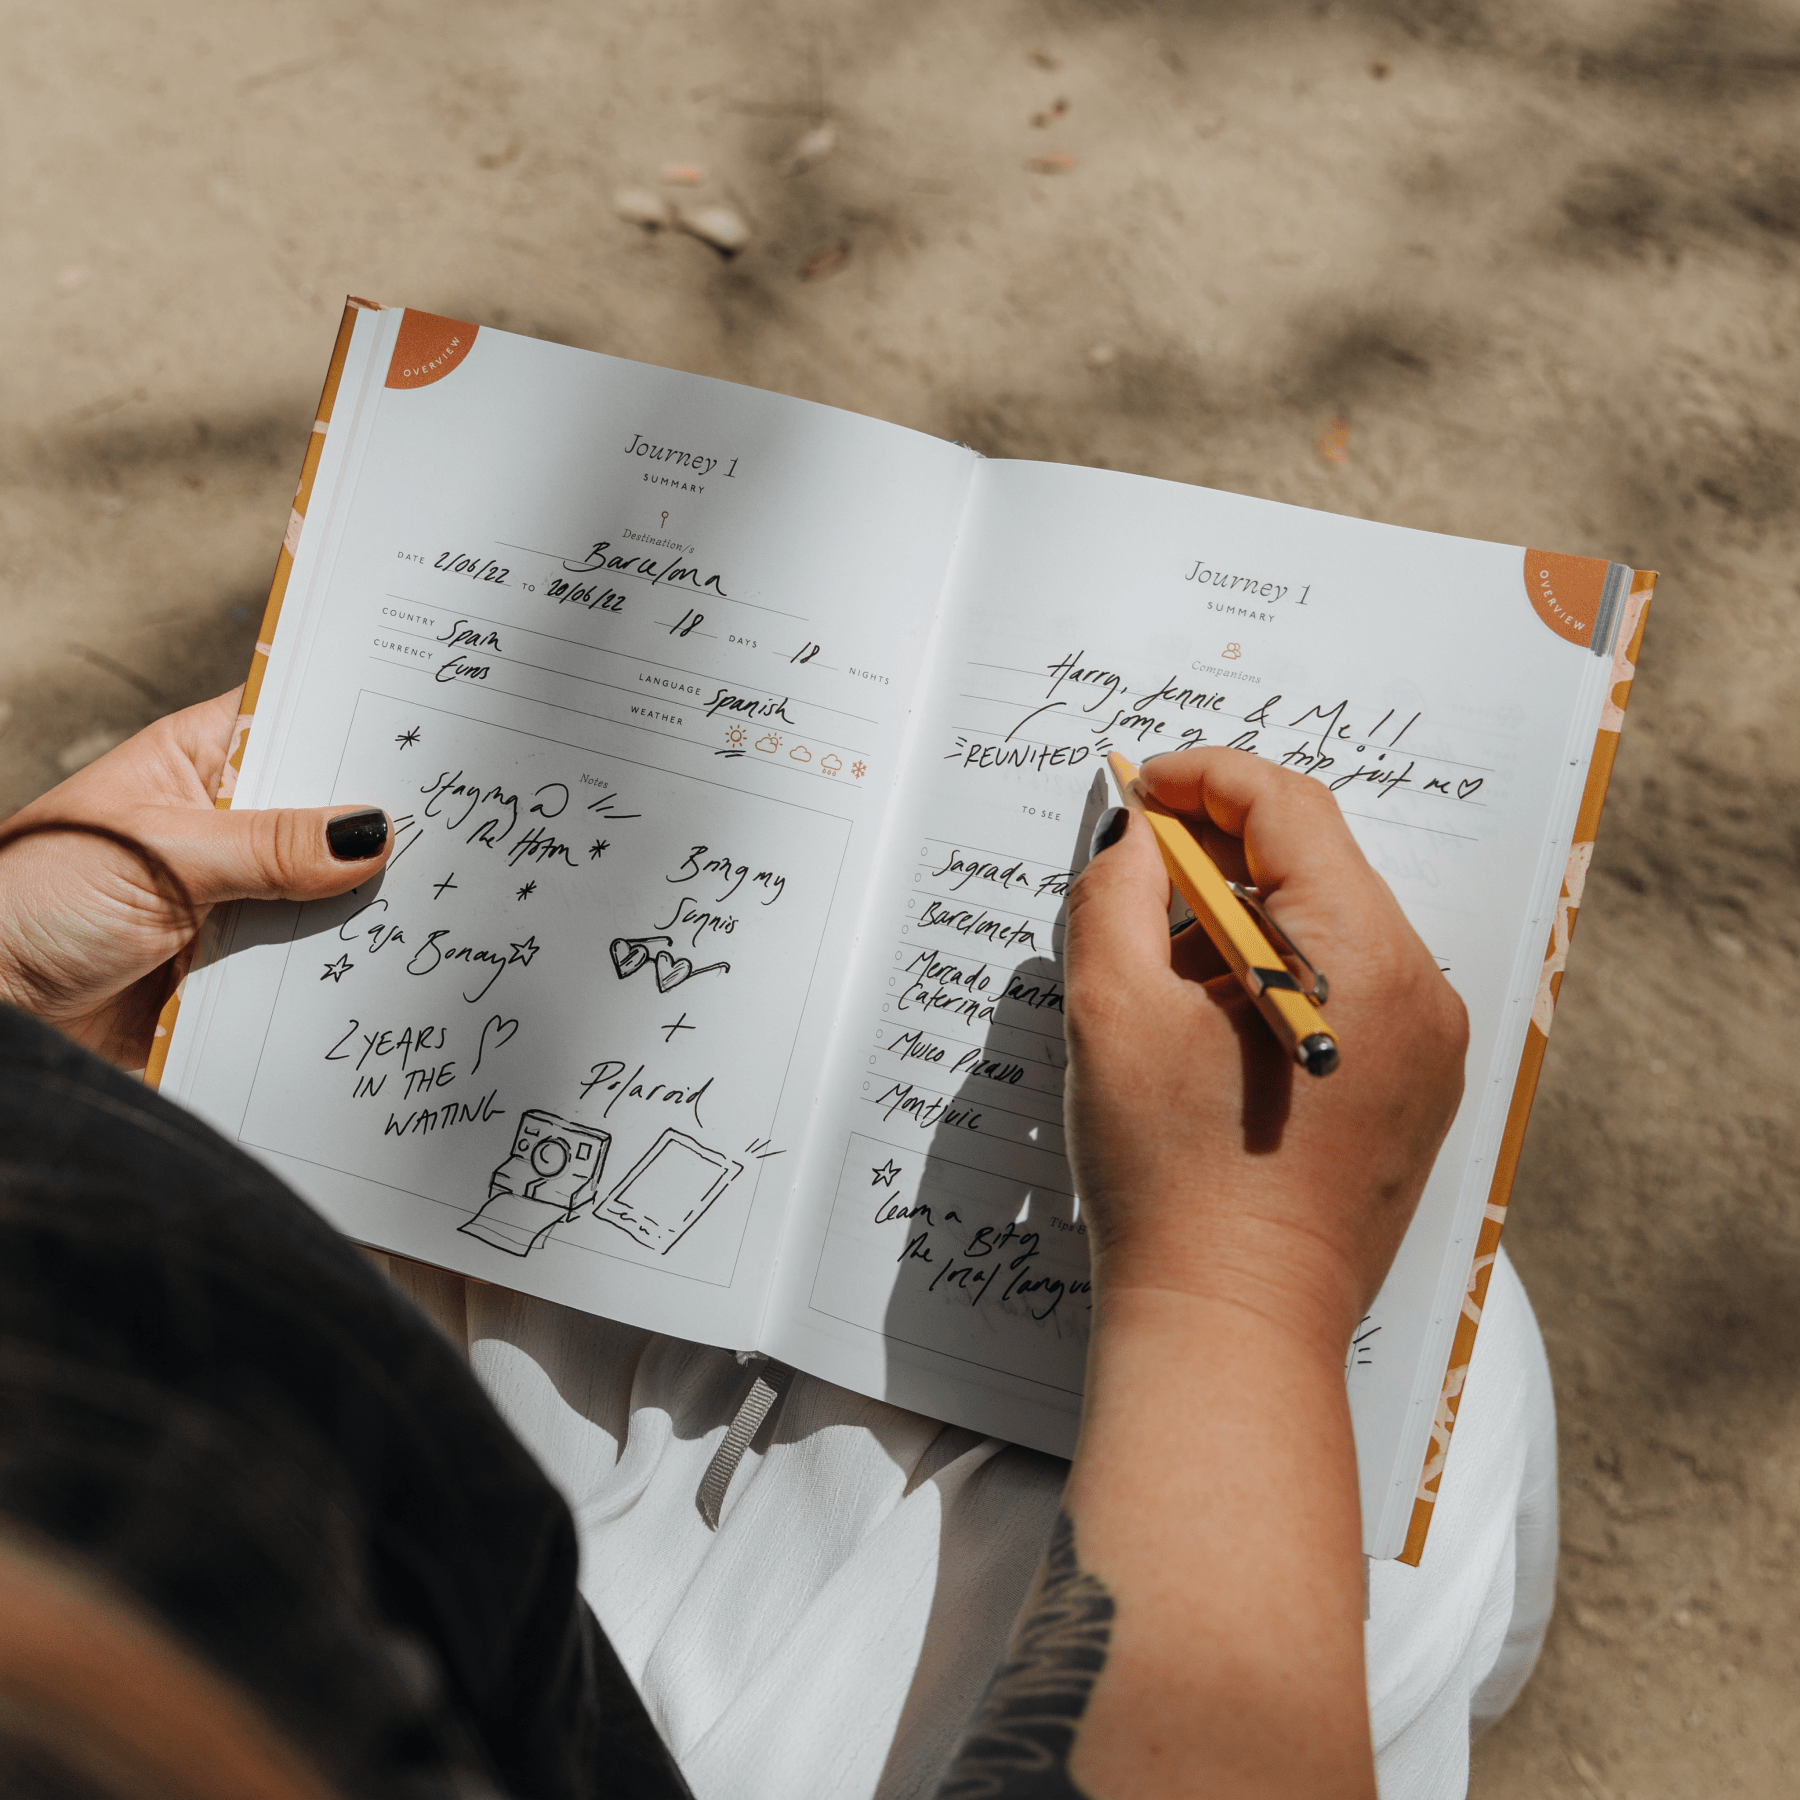 OVERVIEW
Journey 1
SUMMARY
Destination/s
Barcelona
DATE 2/06/22 TO 20/06/22 18 DAYS 18 NIGHTS
COUNTRY Spain
CURRENCY Euros
LANGUAGE Spanish
WEATHER
Notes
Staying @
The Hoxton
+
Casa Bonay
2 YEARS
IN THE
WAITING
Bring my
Sunnis
+
Polaroid
OVERVIEW
Journey 1
SUMMARY
Companions
Harry, Jennie & Me!!
some of the trip just me
REUNITED
TO SEE
Sagrada Fa
Barceloneta
Mercado Santa
Caterina
Museo Picasso
Montjuic
Tips &
Learn a
Bit of
the local